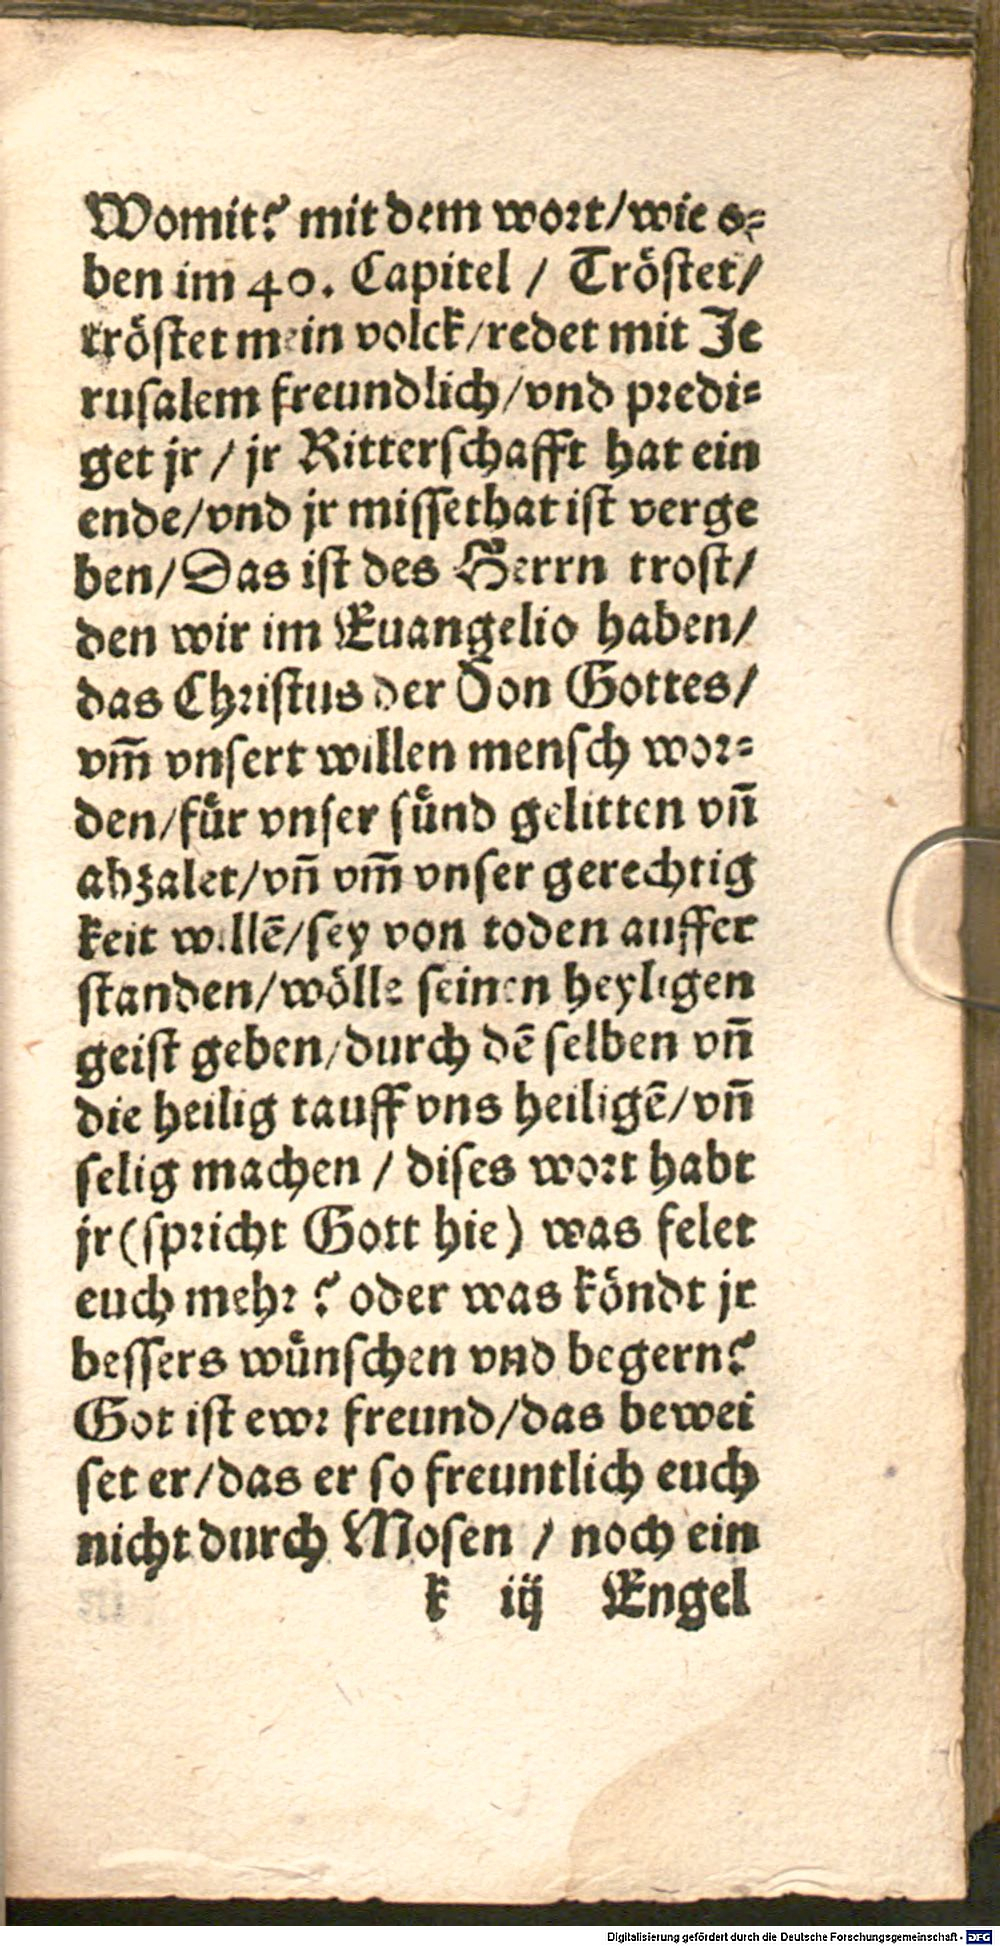 Womit? mit dem wort/wie o⸗
ben im 40. Capitel / Tröstet/
tröstet mein volck/redet mit Je
rusalem freundlich/vnd predi⸗
get jr / jr Ritterschafft hat ein
ende/vnd jr missethat ist verge
ben/Das ist des Herrn trost/
den wir im Euangelio haben/
das Christus der Son Gottes/
vm̃ vnsert willen mensch wor⸗
den/für vnser sünd gelitten vñ
abzalet/vñ vm̃ vnser gerechtig
keit willẽ/sey von toden auffer
standen/wölle seinen heyligen
geist geben/durch dẽ selben vñ
die heilig tauff vns heiligẽ/vñ
selig machen / dises wort habt
jr (spricht Gott hie) was felet
euch mehr ? oder was köndt jr
bessers wünschen vnd begern?
Got ist ewr freund/das bewei
set er/das er so freuntlich euch
nicht durch Mosen / noch ein
k iij Engel
Digitalisierung gefördert durch die Deutsche Forschungsgemeinschaft - DFG